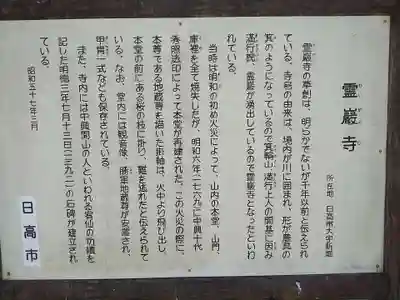 霊巌寺
所在地 日高市大字新堀
霊巌寺の草創は、明らかでないが千年以前と伝えられ
ている。寺号の由来は、境内が川に囲まれ、形が農具の
箕のようになっているので箕輪山、満行上人の開基に因み
満行院、霊巌が湧出しているので霊巌寺となったといわ
れている。
当時は明和の初め火災によって、山内の本堂、山門、
庫裡を全て焼失したが、明和六年(一七六九)に中興十代
秀照法印によって本堂が再建された。この火災の際に、
本尊である地蔵尊を描いた掛軸は、火中より飛び出し、
本堂の前にある桜の枝に掛り、難を逃れたと伝えられて
いる。なお、堂内には観音像、勝軍地蔵尊が安置され、
甲冑一式なども保存されている。
また、寺内には中興開山の人といわれる宥仙の功績を
記した明徳三年七月十三日(一三九二)の石碑が建立され
ている。
昭和五十七年三月
日高市